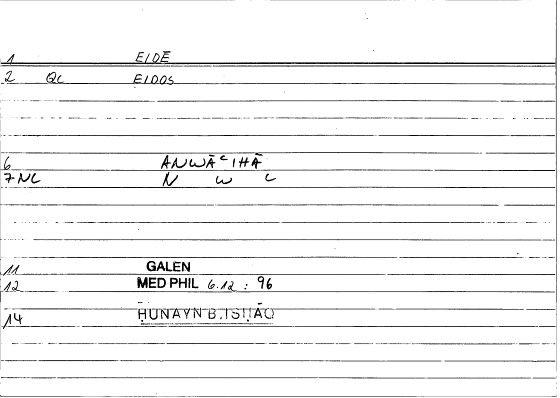 1 EIDĒ
2 QC EIDOS
6 ANWĀᶜIHĀ
7 NC N W C
11 GALEN
12 MED PHIL 6.12 : 96
14 ḤUNAYN B.ISḤĀQ